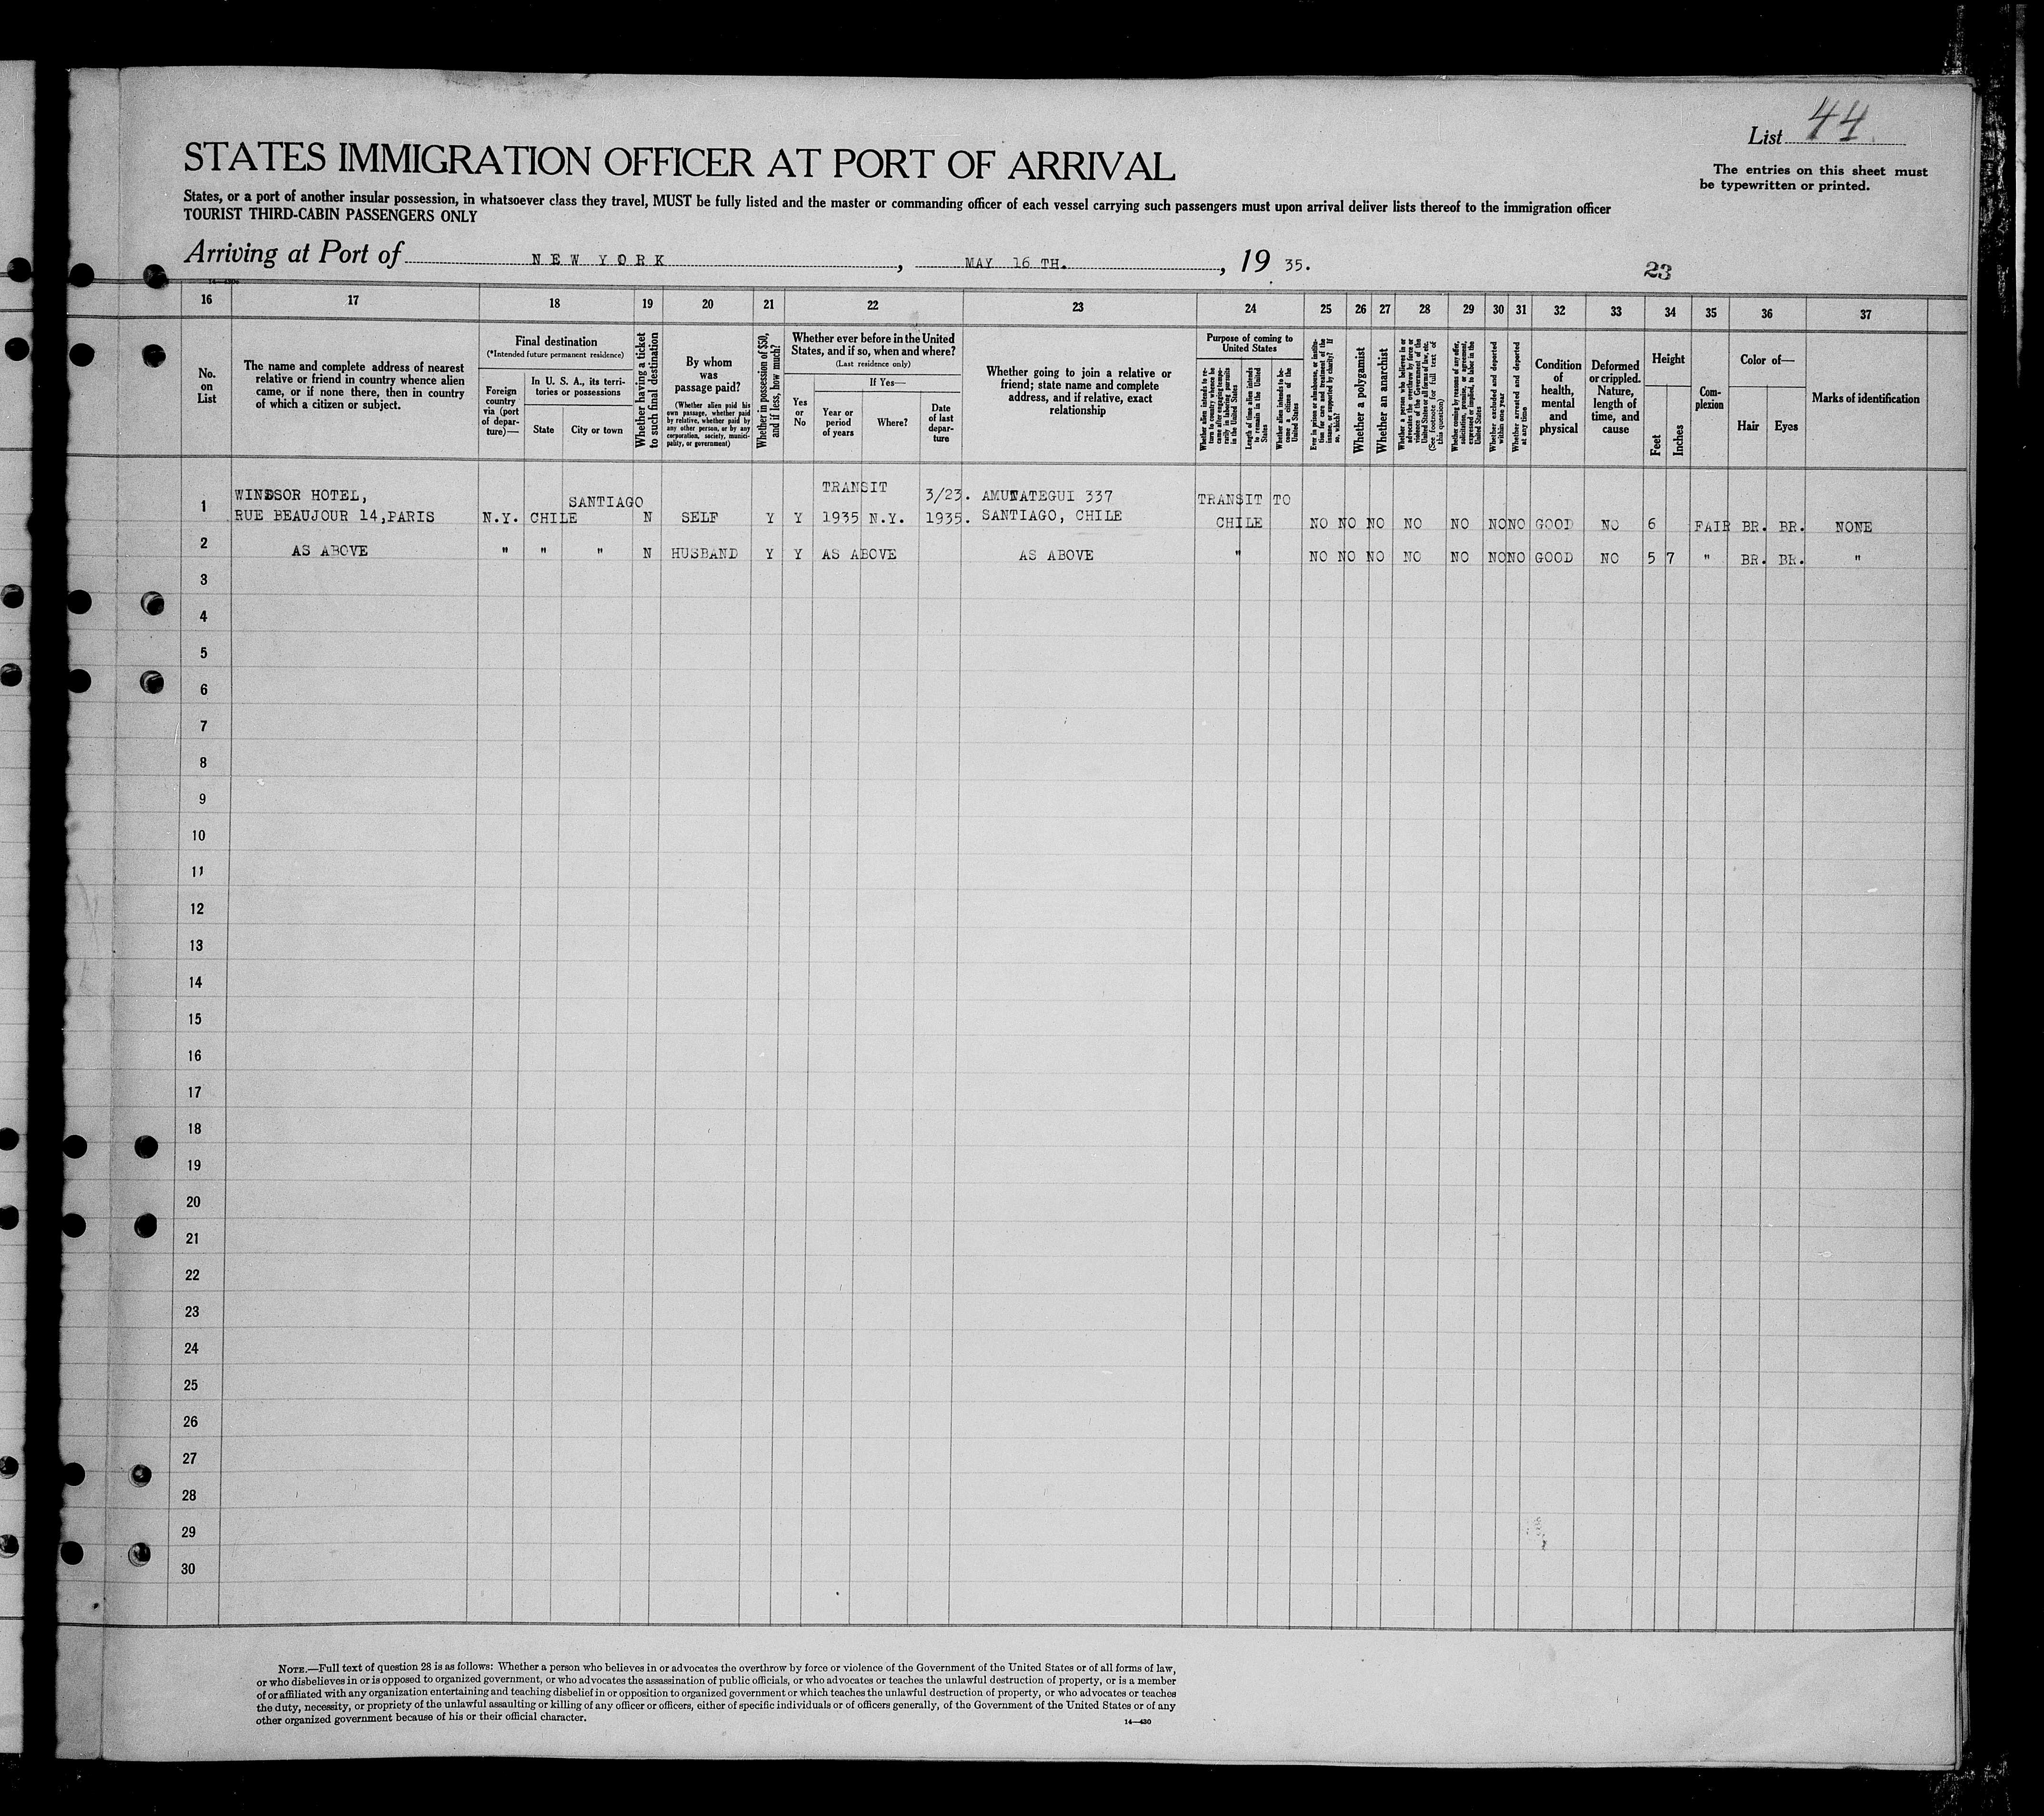 List 44
The entries on this sheet must
be typewritten or printed.
STATES IMMIGRATION OFFICER AT PORT OF ARRIVAL
States, or a port of another insular possession, in whatsoever class they travel, MUST be fully listed and the master or commanding officer of each vessel carrying such passengers must upon arrival deliver lists thereof to the immigration officer
TOURIST THIRD-CABIN PASSENGERS ONLY
Arriving at Port of NEW YORK, MAY 16 TH., 19 35.
23
16 17 18 19 20 21 22 23 24 25 26 27 28 29 30 31 32 33 34 35 36 37
No. on List
The name and complete address of nearest
relative or friend in country whence alien
came, or if none there, then in country
of which a citizen or subject.
Final destination
(*Intended future permanent residence)
Foreign
country
via (port
of depar-
ture)—
In U. S. A., its terri-
tories or possessions
State
City or town
Whether having a ticket
to such final destination
By whom
was
passage paid?
(Whether alien paid his
own passage, whether paid
by relative, whether paid by
any other person, or by any
corporation, society, munici-
pality, or government)
Whether in possession of $50,
and if less, how much?
Whether ever before in the United
States, and if so, when and where?
(Last residence only)
Yes
or
No
If Yes—
Year or
period
of years
Where?
Date
of last
depar-
ture
Whether going to join a relative or
friend; state name and complete
address, and if relative, exact
relationship
Purpose of coming to
United States
Whether alien intends to re-
turn to country whence he
came after engaging tempo-
rarily in laboring pursuits
in the United States
Length of time alien intends
to remain in the United
States
Whether alien intends to be-
come a citizen of the
United States
Ever in prison or almshouse, or institu-
tion for care and treatment of the
insane, or supported by charity? If
so, which?
Whether a polygamist
Whether an anarchist
Whether a person who believes in or
advocates the overthrow by force or
violence of the Government of the
United States or all forms of law, etc.
(See footnote for full text of
this question)
Whether coming by reasons of any offer,
solicitation, promise, or agreement,
expressed or implied, to labor in the
United States
Whether excluded and deported
within one year
Whether arrested and deported
at any time
Condition
of
health,
mental
and
physical
Deformed
or crippled.
Nature,
length of
time, and
cause
Height
Feet
Inches
Com-
plexion
Color of—
Hair
Eyes
Marks of identification
WINDSOR HOTEL, SANTIAGO TRANSIT 3/23. AMUNATEGUI 337 TRANSIT TO
1 RUE BEAUJOUR 14,PARIS N.Y. CHILE N SELF Y Y 1935 N.Y. 1935. SANTIAGO, CHILE CHILE NO NO NO NO NO NO NO GOOD NO 6 FAIR BR. BR. NONE
2 AS ABOVE " " " N HUSBAND Y Y AS ABOVE AS ABOVE " NO NO NO NO NO NO NO GOOD NO 5 7 " BR. BR. "
3
4
5
6
7
8
9
10
11
12
13
14
15
16
17
18
19
20
21
22
23
24
25
26
27
28
29
30
NOTE.—Full text of question 28 is as follows: Whether a person who believes in or advocates the overthrow by force or violence of the Government of the United States or of all forms of law,
or who disbelieves in or is opposed to organized government, or who advocates the assassination of public officials, or who advocates or teaches the unlawful destruction of property, or is a member
of or affiliated with any organization entertaining and teaching disbelief in or opposition to organized government or which teaches the unlawful destruction of property, or who advocates or teaches
the duty, necessity, or propriety of the unlawful assaulting or killing of any officer or officers, either of specific individuals or of officers generally, of the Government of the United States or of any
other organized government because of his or their official character.
14—430